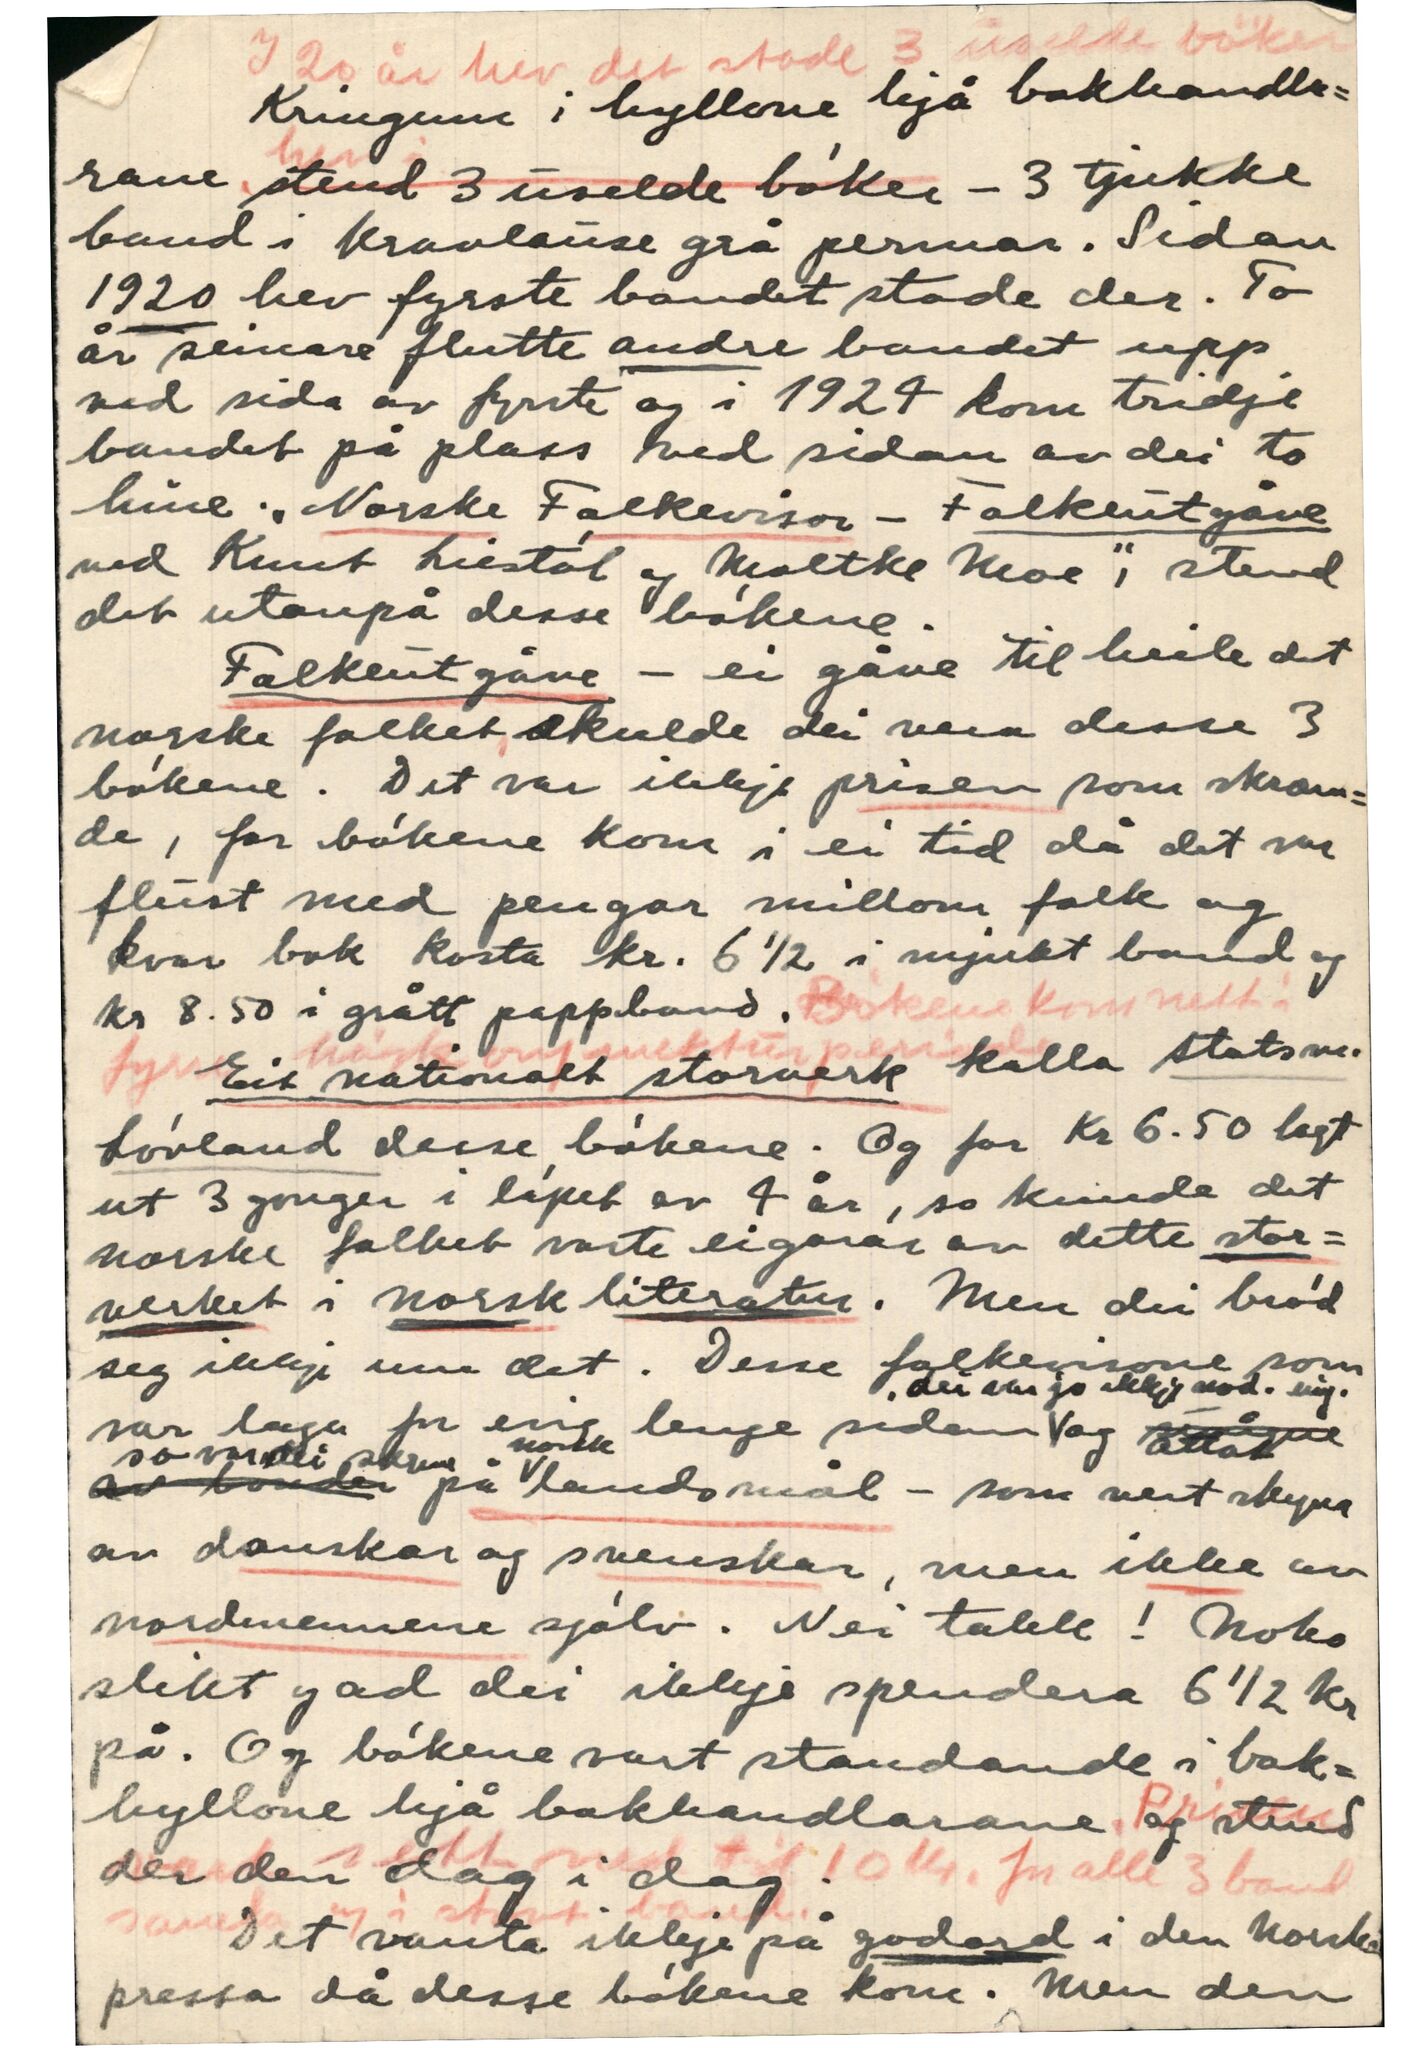 I 20 år hev det stade 3 uselde böker
Kringum i hyllone hjå bokhandla=
her i
rane stend 3 uselde bóker – 3 tjukke
band i kravlause grå permar. Sidan
1920 hev fyrste bandet stade der. To
år seinare flutte andre bandet upp
ved sida av fyrste og i 1924 kom tridje
bandet på plass ved sidan av dei to
hine. „Norske Folkevisor – Folkeutgåve
ved Knut Liestøl og Moltke Moe", stend
det utanpå desse bókene.
Folkeutgåve – ei gåve til heile det
norske folket, skulde dei vera desse 3
bókene. Det var ikkje prisen som skræm=
de, for bókene kom i ei tid då det var
flust med pengar millom folk og
kvar bok kosta kr. 6 1/2 i mjukt band og
kr 8.50 i grått pappband. Bökene kom nett i
fyrste
Eit nationalt storverk kalla Statsm.
Lóvland desse bókene. Og for Kr 6.50 lagt
ut 3 gonger i lópet av 4 år, so kunde det
norske folket vorte eigarar av dette stor=
verket i norsk literatur. Men dei bród
seg ikkje um det. Desse folkevisone som
, dei var jo ikkje mod. nig.
var laga for evig lenge sidan og attåt
so var dei skrevne norsk
av bonder på landsmål – som vert skyna
av danskar og svenskar, men ikke av
nordmennene sjólv. Nei takk! Noko
slikt gad dei ikkje spendera 6 1/2 kr
på. Og bókene vart standande i bak=
hyllone hjå bokhandlarane og stend
Prisen
der den dag i dag.
sett ned til 10 kr. for alle 3 band
samla og i stort band.
Det vanta ikkje på godord i den norske
pressa då desse bókene kom. Men den